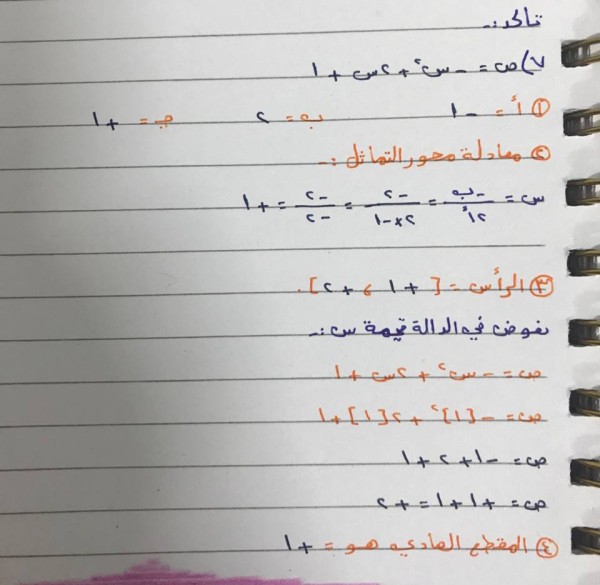 تأكد:-
٧) ص = - س٢ + ٢س + ١
① أ = - ١ ب = ٢ جـ = + ١
② معادلة محور التماثل :-
س = -ب/٢أ = -٢/٢×-١ = -٢/-٢ = + ١
③ الرأس = [ + ١ ، + ٢ ].
نعوض في الدالة قيمة س :-
ص = - س٢ + ٢س + ١
ص = - [١]٢ + ٢[١] + ١
ص = - ١ + ٢ + ١
ص = + ١ + ١ = + ٢
④ المقطع الصادي هو = + ١